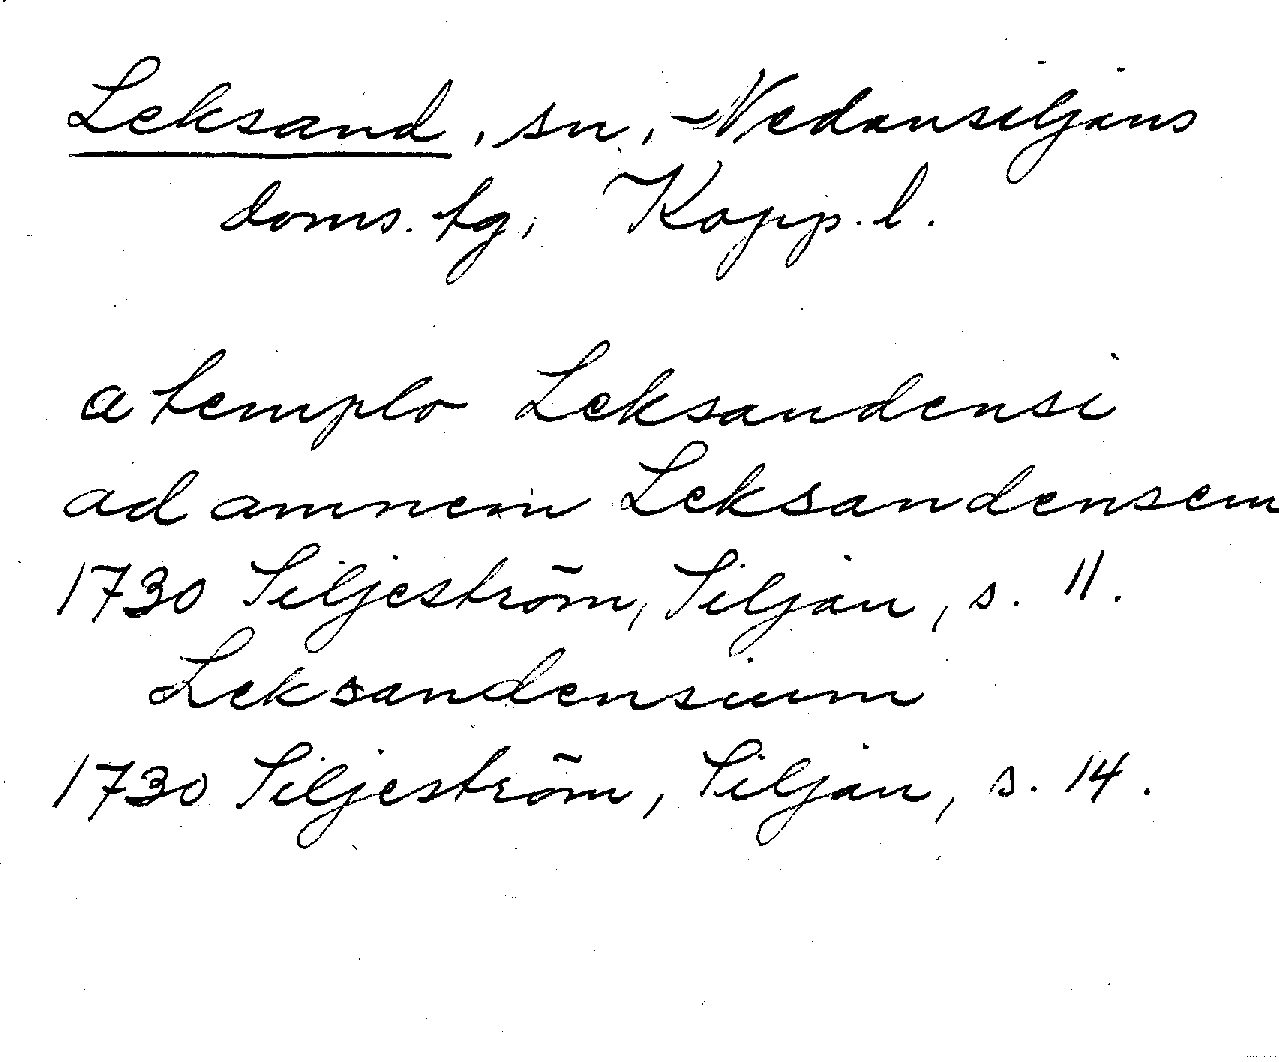 Leksand, sn, Nedansiljans
doms. tg, Kopp. l.
a templo Leksandensi
ad amnem Leksandensem
1730 Siljeström, Siljan, s. 11.
Leksandensium
1730 Siljeström, Siljan, s. 14.